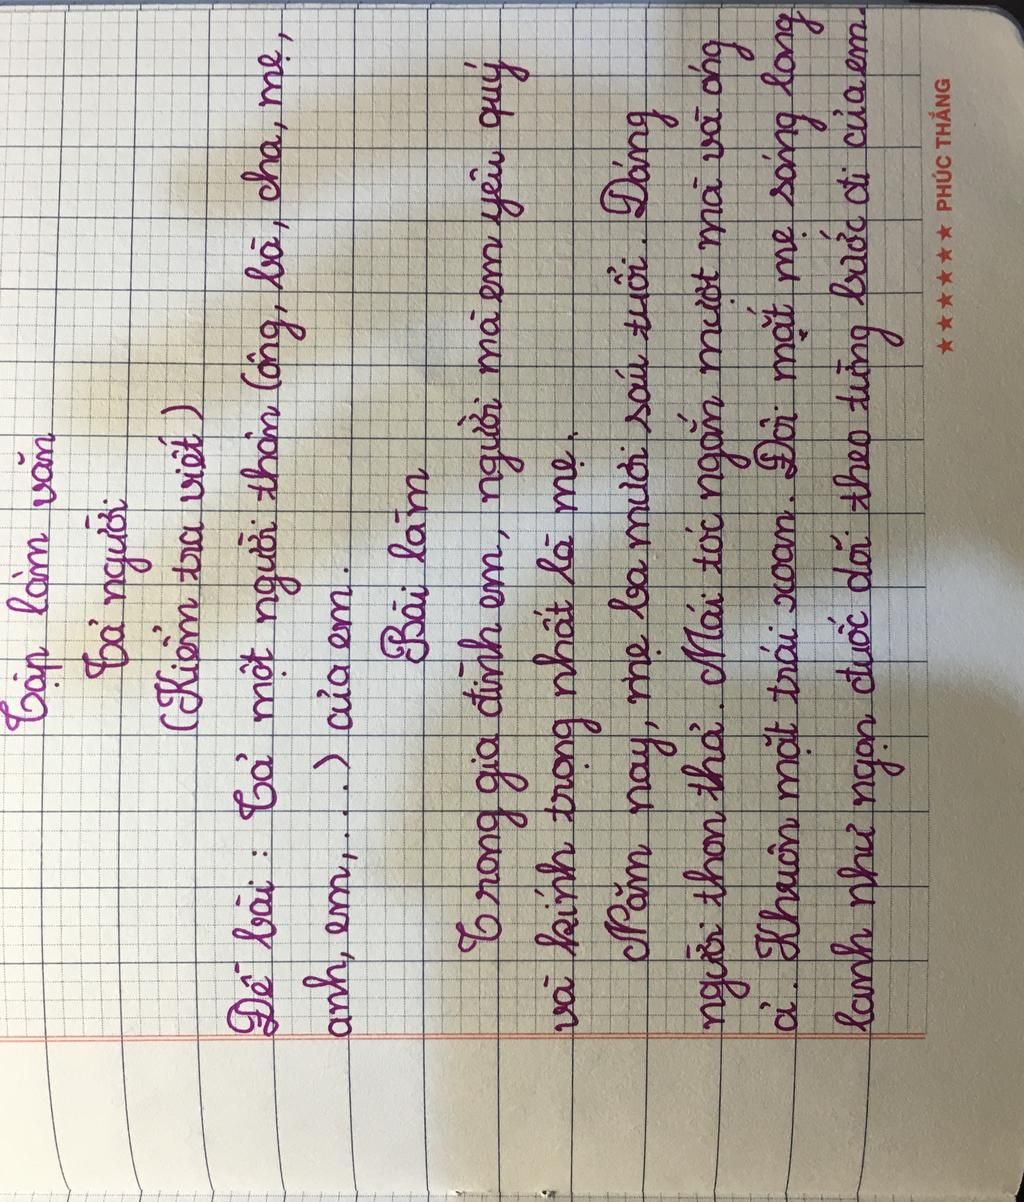 Tập làm văn
Tả người
(Kiểm tra viết)
Đề bài : Tả một người thân (ông, bà, cha, mẹ,
anh, em,...) của em.
Bài làm
Trong gia đình em, người mà em yêu quý
và kính trọng nhất là mẹ.
Năm nay, mẹ ba mươi sáu tuổi. Dáng
người thon thả. Mái tóc ngắn mượt mà và óng
ả. Khuôn mặt trái xoan. Đôi mắt mẹ sáng long
lanh như ngọn đuốc dõi theo từng bước đi của em.
★★★★★★ PHÚC THẮNG